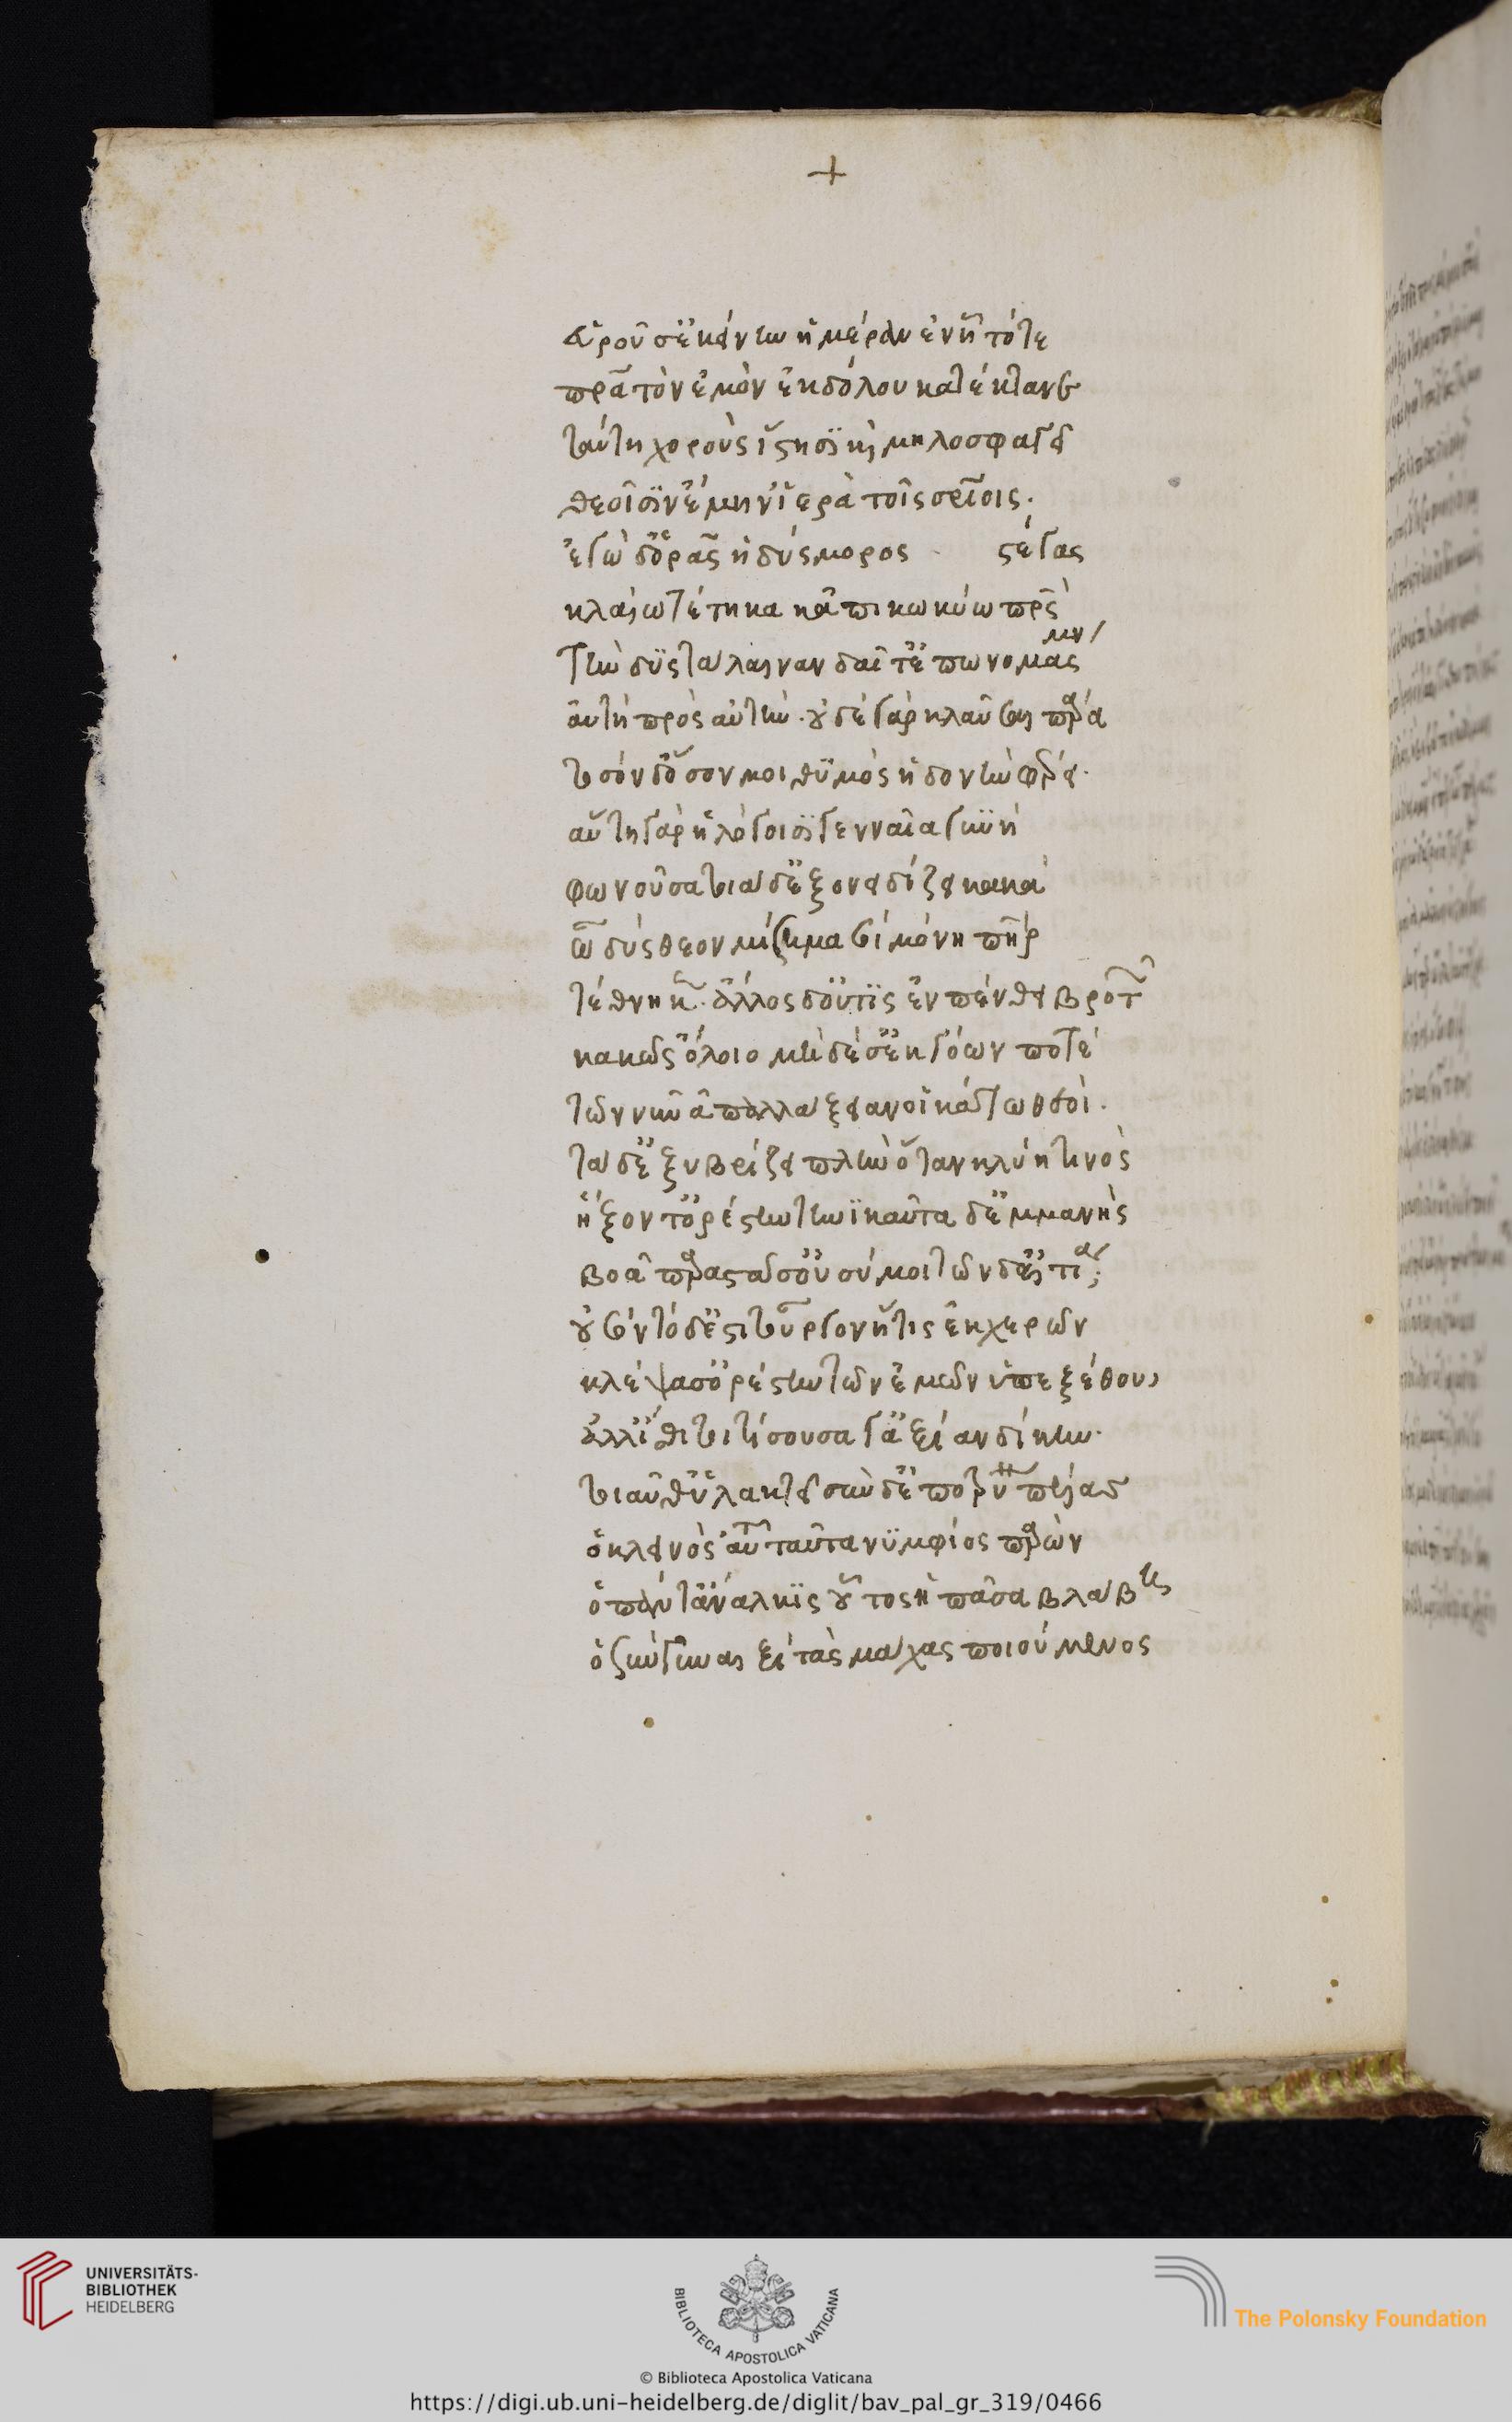 +
εὑροῦσ' ἐκείνην ἡμέραν ἐν ἧ τότε
πρ̅α τὸν ἐμὸν ἐκ δόλου κατέκτανεν
ταύτη χοροὺς ἵστησι καὶ μηλοσφαγεῖ
θεοῖσιν ἔμην' ἱερὰ τοῖς σρ̅ίοις.
ἐγὼ δ' ὁρῶσ' ἡ δύσμορος στέγας
κλαίω τέτηκα κἀπικωκύω πρ̅ς
τὴν δυστάλαιναν δαῖτ' ἐπωνομασμένην
αὐτὴ πρὸς αὑτήν. οὐδὲ γὰρ κλαῦσαι πάρα
τοσόνδ' ὅσον μοι θυμὸς ἡδονὴν φέρει.
αὕτη γὰρ ἡ λόγοισι γενναία γυνὴ
φωνοῦσα τοιάδ' ἐξονειδίζει κακά
ὦ δύσθεον μίσημα σοὶ μόνη πη̅ρ
τέθνηκεν. ἄλλος δ' οὔτις ἐν πένθει βροτῶν
κακῶς ὄλοιο μηδέ σ' ἐκ γόων ποτὲ
τῶν νῦν ἀπαλλάξειαν οἱ κάτω θεοί.
τάδ' ἐξυβρίζει πλὴν ὅταν κλύη τινὸς
ἥξοντ' ὀρέστην τηνικαῦτα δ' ἐμμανὴς
βοᾶ παραστᾶσ' οὐ σύ μοι τῶνδ' αἰτία;
οὐ σὸν τόδ' ἐστὶ τοὔργον ἥτις ἐκ χερῶν
κλέψασ' ὀρέστην τῶν ἐμῶν ὑπεξέθου
ἀλλ' ἴσθι τοι τίσουσά γ' ἀξίαν δίκην.
τοιαῦθ' ὑλακτεῖ σὺν δ' ἐποτρύνει πέλας
ὁ κλεινὸς αὐτῆ ταῦτα νυμφίος παρὼν
ὁ πάντ' ἄναλκις οὗτος ἡ πᾶσα βλάβη
ὁ σὺν γυναιξὶ τὰς μάχας ποιούμενος
UNIVERSITÄTS-
BIBLIOTHEK
HEIDELBERG
BIBLIOTECA APOSTOLICA VATICANA
The Polonsky Foundation
© Biblioteca Apostolica Vaticana
https://digi.ub.uni-heidelberg.de/diglit/bav_pal_gr_319/0466